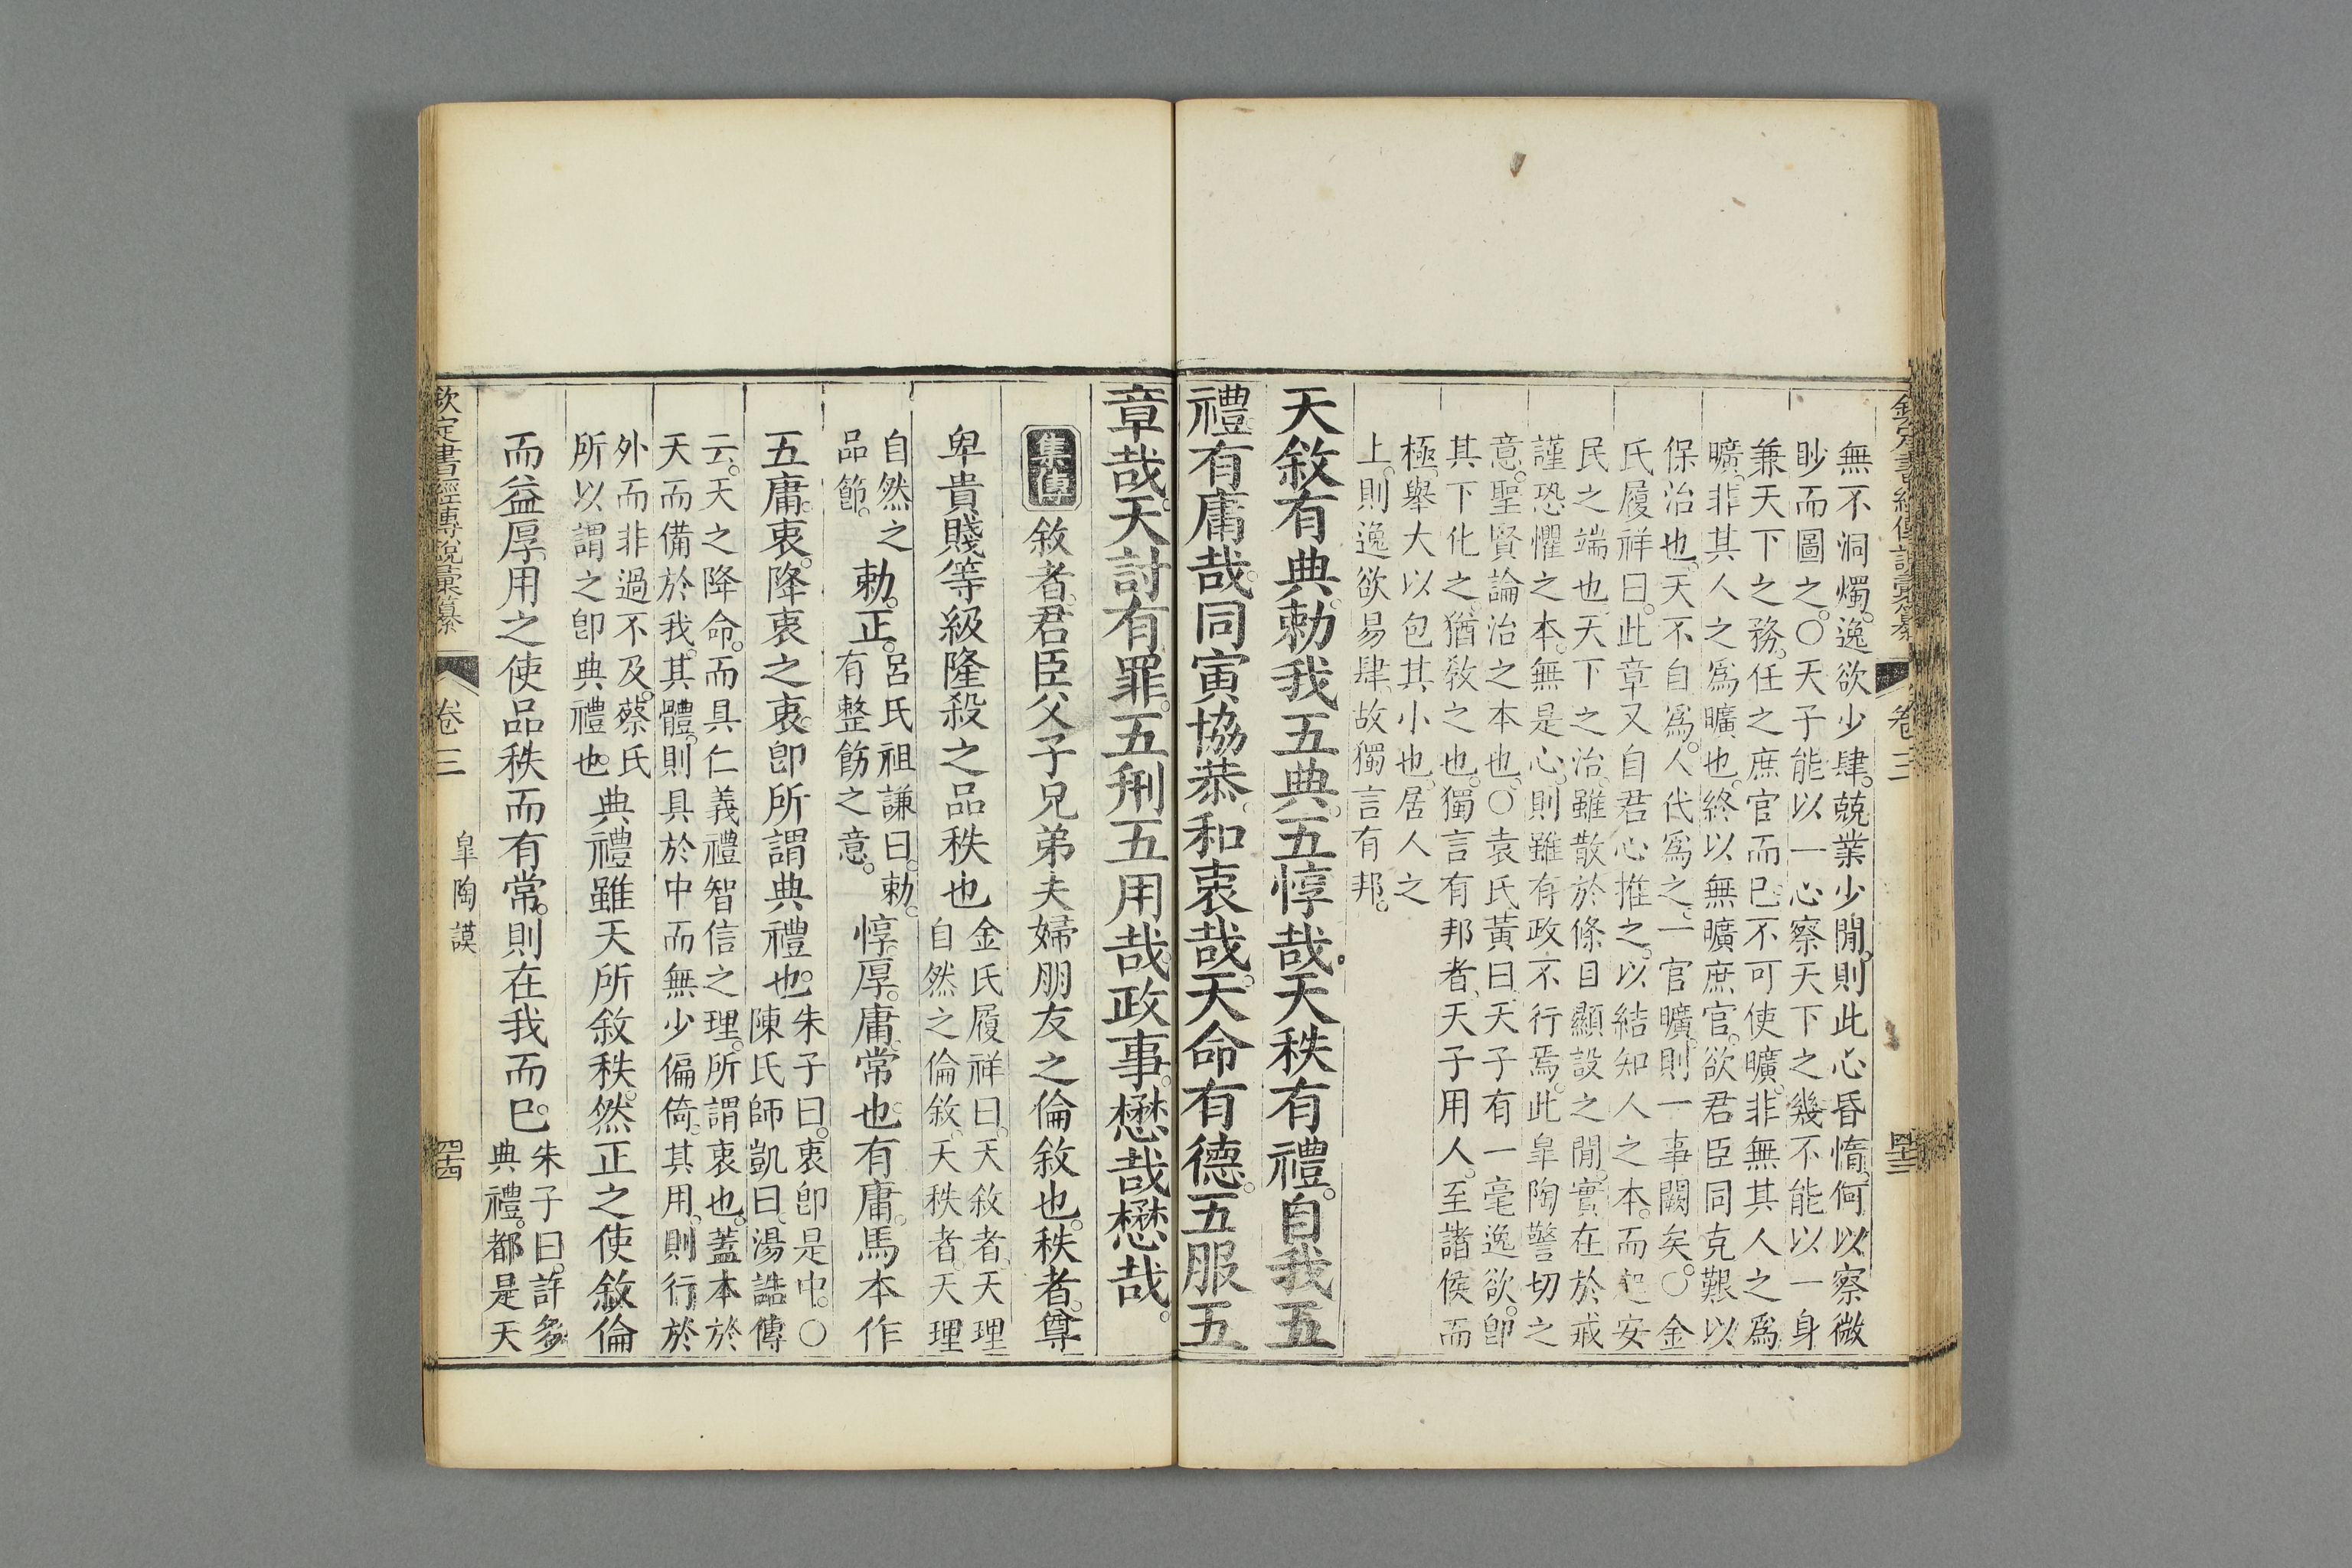 欽定書經傳說彙纂 卷三 四十三
無不洞燭。逸欲少肆。兢業少閒。則此心昏惰。何以察微
眇而圖之。○天子能以一心察天下之幾不能以一身
兼天下之務。任之庶官而已不可使曠。非無其人之爲
曠。非其人之爲曠也。終以無曠庶官。欲君臣同克艱以
保治也。天不自爲。人代爲之。一官曠。則一事闕矣。○金
氏履祥曰。此章又自君心推之。以結知人之本。而起安
民之端也。天下之治。雖散於條目顯設之閒。實在於戒
謹恐懼之本。無是心。則雖有政不行焉。此臯陶警切之
意。聖賢論治之本也。○袁氏黃曰。天子有一毫逸欲。卽
其下化之。猶敎之也。獨言有邦者。天子用人。至諸侯而
極。舉大以包其小也。居人之
上。則逸欲易肆。故獨言有邦。
天敘有典。勅我五典。五惇哉。天秩有禮。自我五
禮有庸哉。同寅協恭。和衷哉。天命有德。五服五
章哉。天討有罪。五刑五用哉。政事。懋哉懋哉。
集傳 敘者。君臣父子兄弟夫婦朋友之倫敘也。秩者。尊
卑貴賤等級隆殺之品秩也
金氏履祥曰。天敘者。天理
自然之倫敘。天秩者。天理
自然之
品節。
勅。正。
呂氏祖謙曰。勅。
有整飭之意。
惇。厚。庸。常也。有庸。馬本作
五庸。衷。降衷之衷。卽所謂典禮也。
朱子曰。衷卽是中。○
陳氏師凱曰。湯誥傳
云。天之降命。而具仁義禮智信之理。所謂衷也。蓋本於
天而備於我。其體。則具於中而無少偏倚。其用。則行於
外而非過不及。蔡氏
所以謂之卽典禮也。
典禮雖天所敘秩。然正之使敘倫
而益厚。用之使品秩而有常。則在我而已。
朱子曰。許多
典禮。都是天
欽定書經傳說彙纂 卷三 臯陶謨 四十四